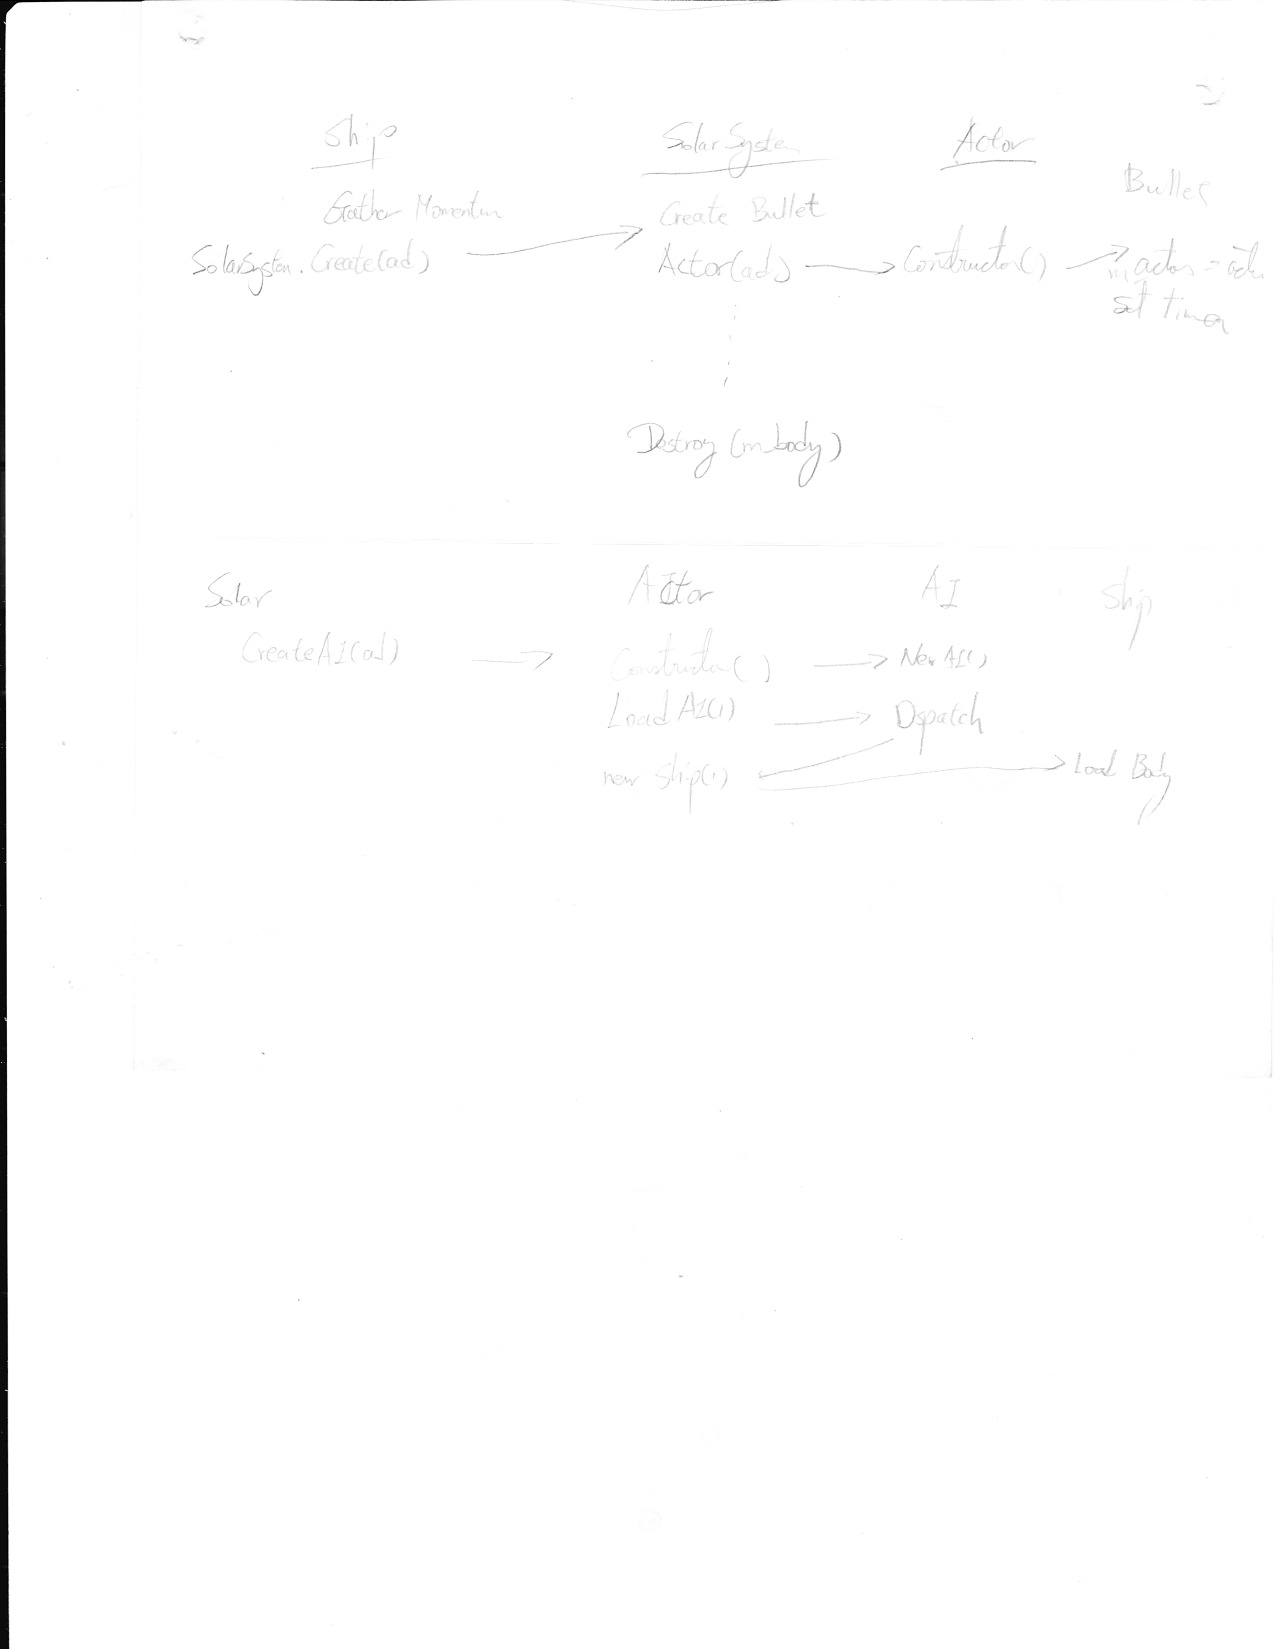 Ship SolarSystem Actor
Bullet
Gather Momentum Create Bullet
SolarSystem.Create(ad) Actor(ad) Constructor() m_actor =
set timer
Destroy (m_body)
Solar Actor AI Ship
CreateAI(ad) Constructor() New AI()
Load AI(1) Dspatch
new Ship(1) Load Body